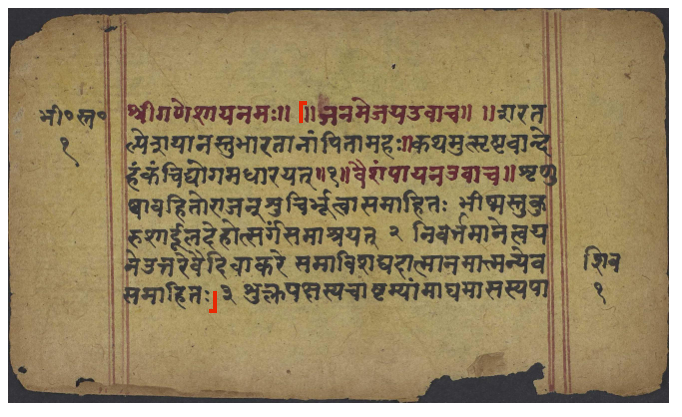 श्रीगणेशायनमः॥ ॥जनमेजयउवाच॥ ॥शरत
ल्पेशयानस्तुभारतानांपितामहः॥कथमुत्सृष्टवान्दे
हंकंचिद्योगमधारयत्॥१॥वैशंपायनउवाच॥शृणु
ष्वावहितोराजन्शुचिर्भूत्वासमाहितः भीष्मस्तुकु
रुशार्दूलदेहोत्सर्गंसमाश्रयत् २ निवर्तमानेत्वय
नेउत्तरेवैदिवाकरे समाविशद्यदात्मानमात्मन्येव
समाहितः ३ शुक्लपक्षस्यचाष्टम्यांमाघमासस्यपा
भी॰स्त॰
१
शिव
१